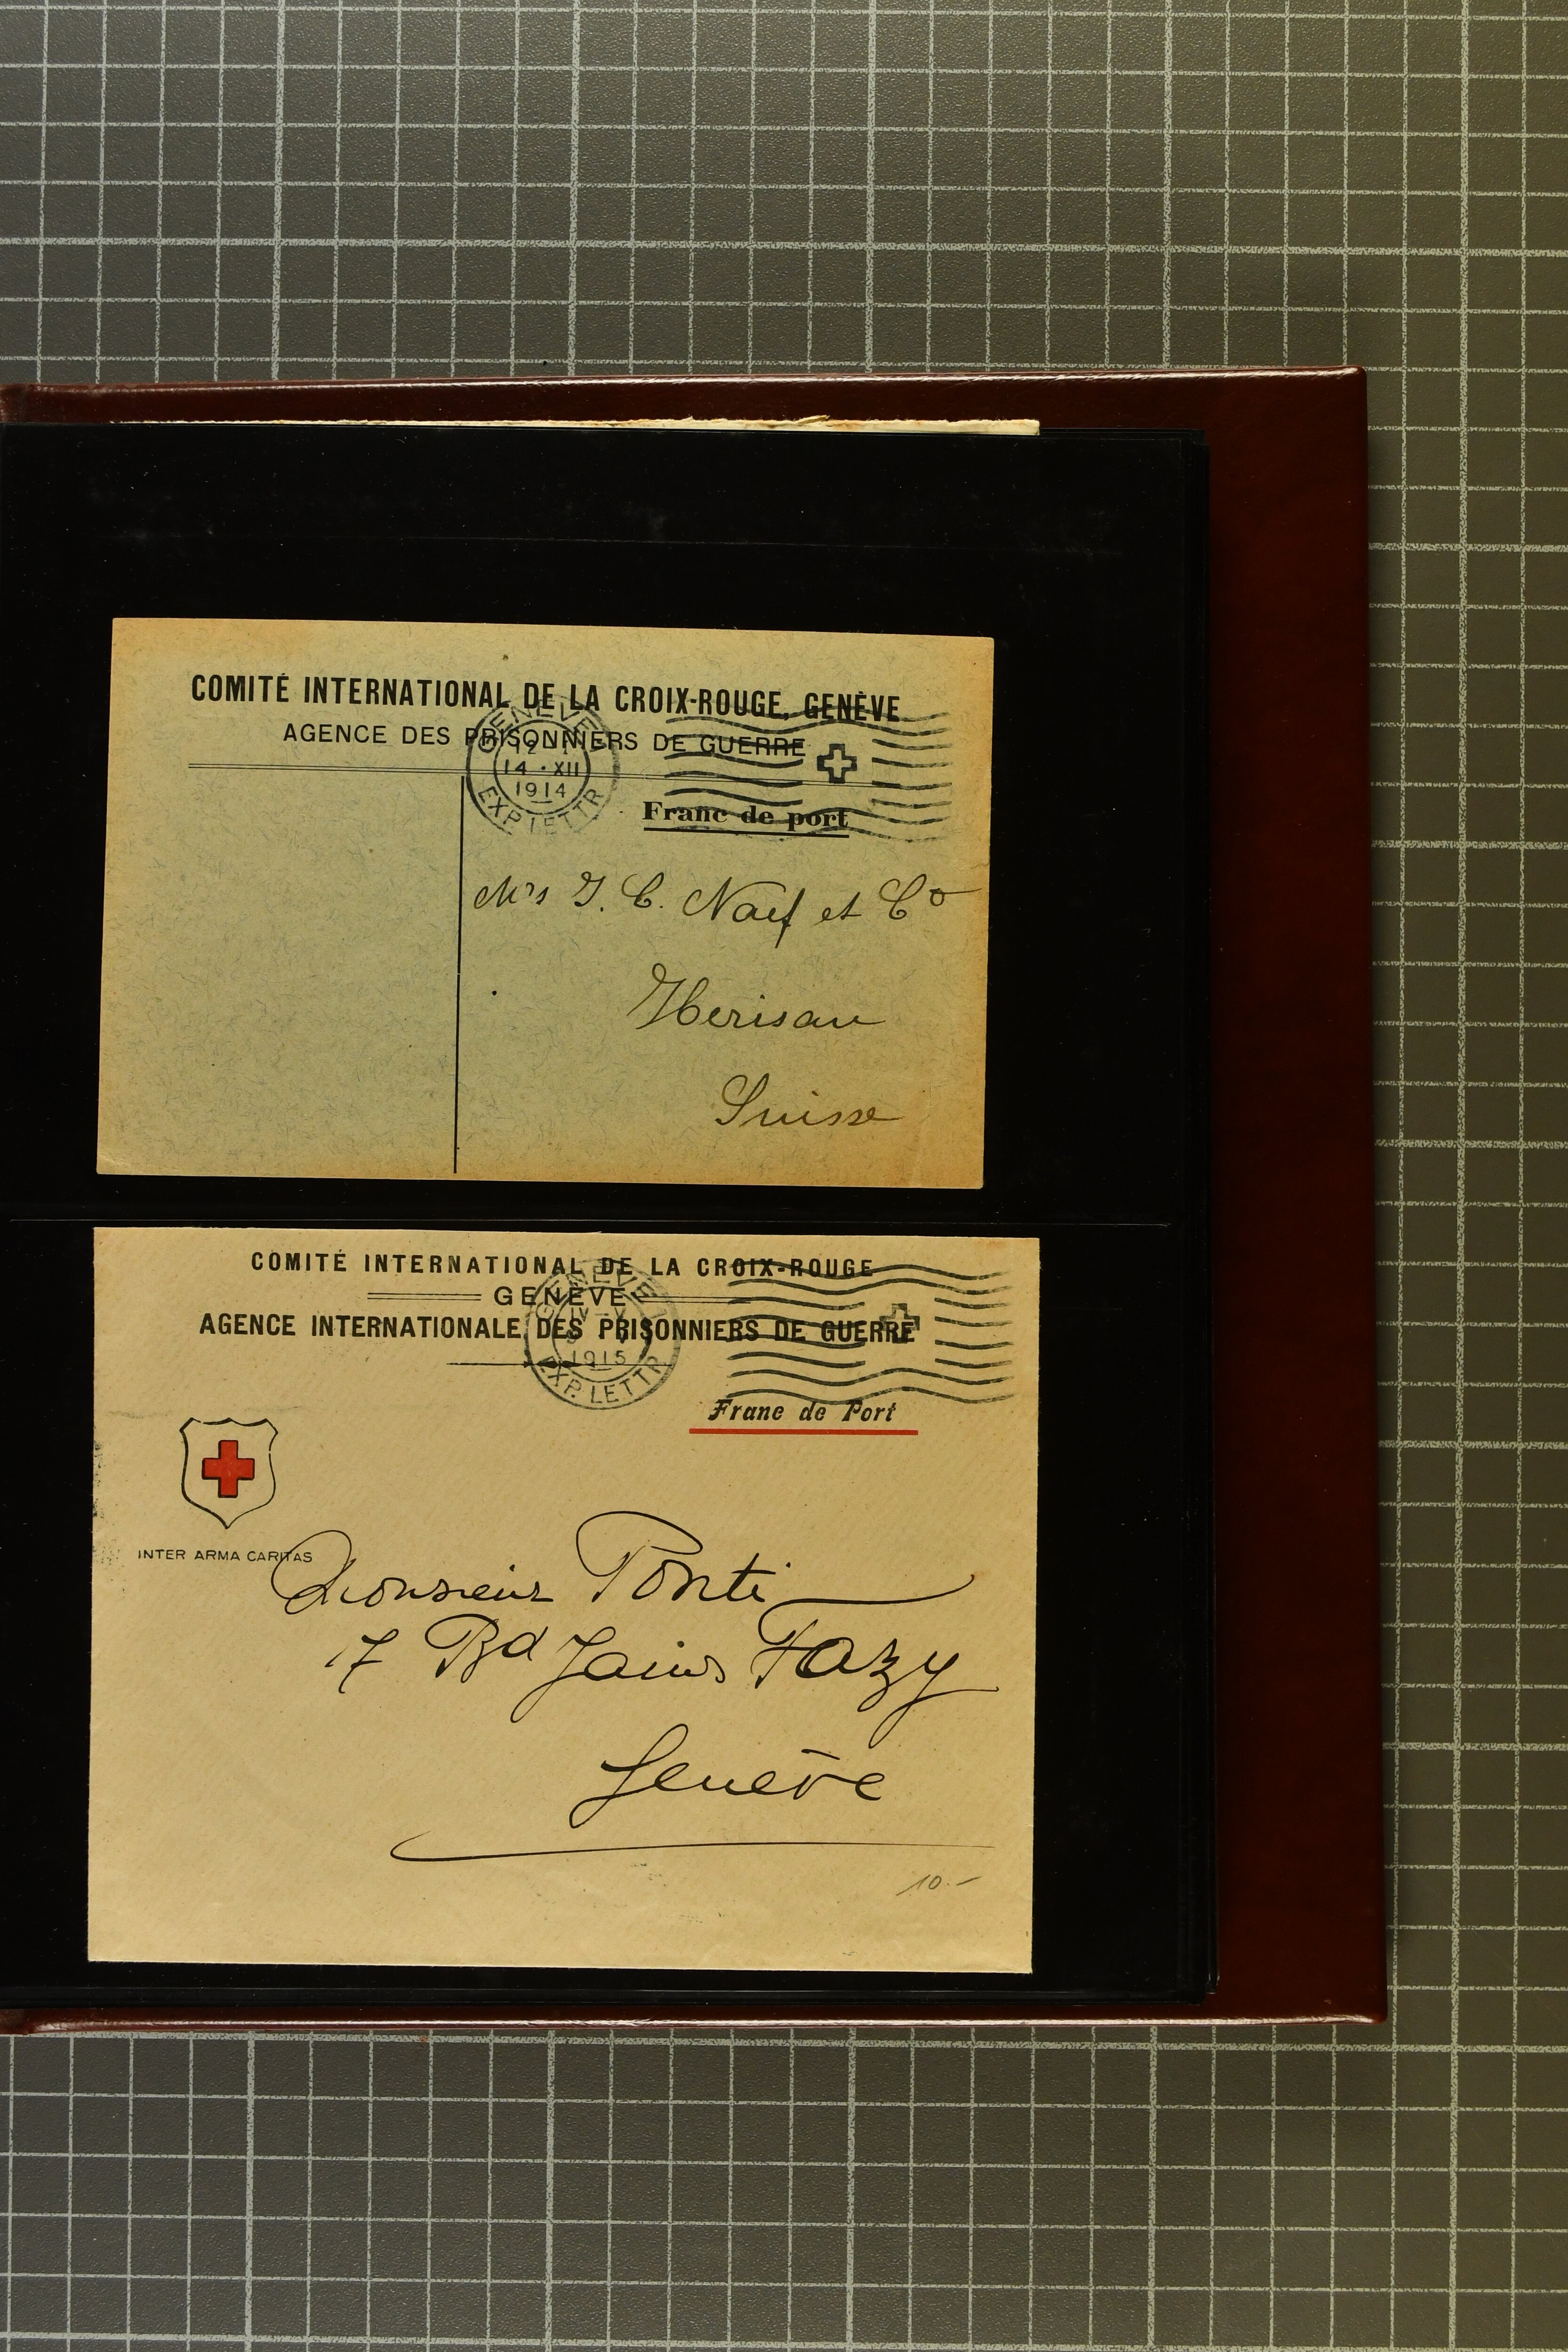 COMITÉ INTERNATIONAL DE LA CROIX-ROUGE, GENÈVE
AGENCE DES PRISONNIERS DE GUERRE
GENÈVE
14 · XII
1914
EXP. LETTR
Franc de port
Mrs J. C. Naef et Co
Herisau
Suisse
COMITÉ INTERNATIONAL DE LA CROIX-ROUGE
GENÈVE
AGENCE INTERNATIONALE DES PRISONNIERS DE GUERRE
GENÈVE
1915
EXP. LETTR
Franc de Port
INTER ARMA CARITAS
Monsieur Ponti
17 Bd James Fazy
Genève
10.-